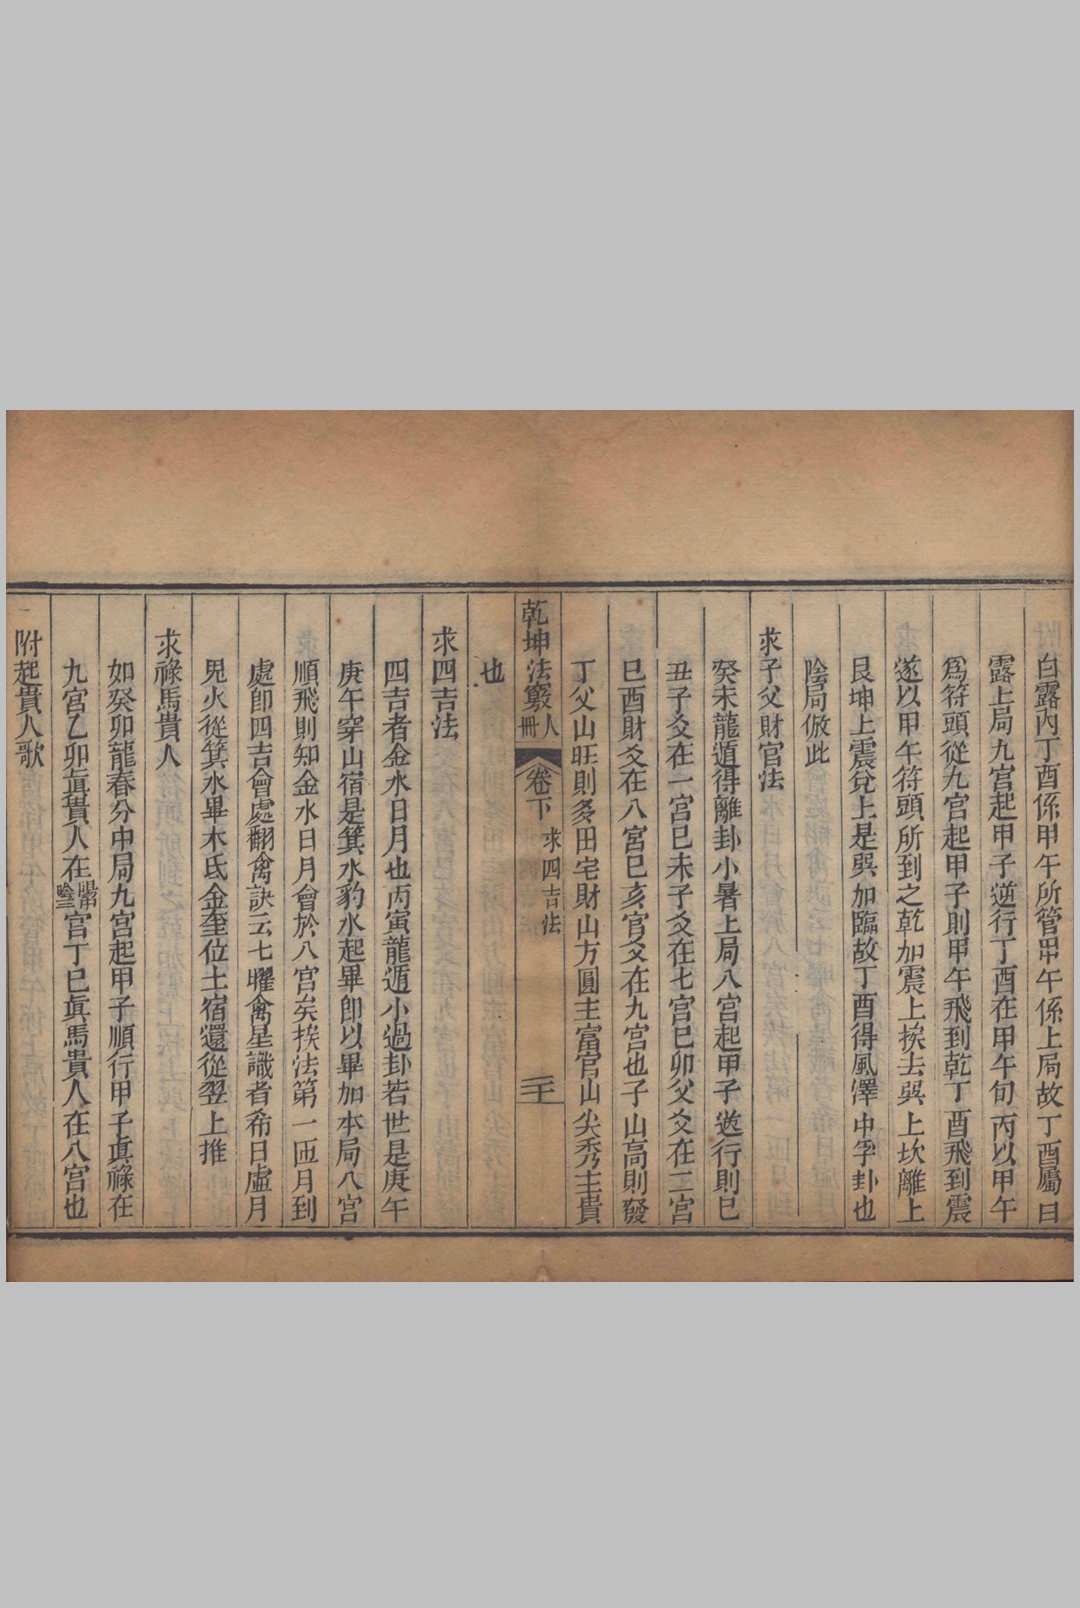 白露內丁酉係甲午所管甲午係上局故丁酉屬白
露上局九宮起甲子逆行丁酉在甲午旬丙以甲午
爲符頭從九宮起甲子則甲午飛到乾丁酉飛到震
遂以甲午符頭所到之乾加震上挨去巽上坎離上
艮坤上震兌上是巽加臨故丁酉得風澤中孚卦也
陰局倣此
求子父財官法
癸未龍遁得離卦小暑上局八宮起甲子逆行則巳
丑子爻在一宮巳未子爻在七宮巳卯父爻在二宮
巳酉財爻在八宮巳亥官爻在九宮也子山高則發
丁父山旺則多田宅財山方圓主富官山尖秀主貴
乾坤法竅人冊 卷下 求四吉法 二十
也
求四吉法
四吉者金水日月也丙寅龍遁小過卦若世是庚午
庚午穿山宿是箕水豹水起畢卽以畢加本局八宮
順飛則知金水日月會於八宮矣挨法第一匝月到
處卽四吉會處翻禽訣云七曜禽星識者希日虛月
鬼火從箕水畢木氐金奎位土宿還從翌上推
求祿馬貴人
如癸卯龍春分中局九宮起甲子順行甲子眞祿在
九宮乙卯眞貴人在宮丁巳眞馬貴人在八宮也
附起貴人歌